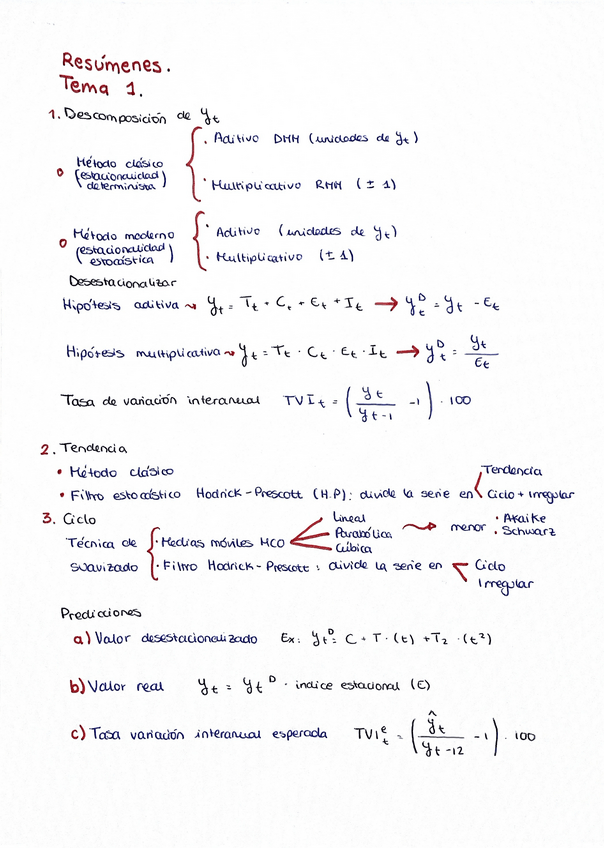 Resúmenes.
Tema 1.
1. Descomposición de yt
• Aditivo DMM (unidades de yt)
o Método clásico
(estacionalidad
determinista)
• Multiplicativo RMM (± 1)
o Método moderno
(estacionalidad
estocástica)
• Aditivo (unidades de yt)
• Multiplicativo (± 1)
Desestacionalizar
Hipótesis aditiva ↝ yt = Tt + Ct + Et + It → yt^D = yt - Et
Hipótesis multiplicativa ↝ yt = Tt · Ct · Et · It → yt^D = yt / Et
Tasa de variación interanual TVIt = (yt / yt-1 - 1) · 100
2. Tendencia
• Método clásico
• Filtro estocástico Hodrick-Prescott (H.P): divide la serie en
Tendencia
Ciclo + Irregular
3. Ciclo
Técnica de
suavizado
• Medias móviles MCO
Lineal
Parabólica
Cúbica
↝ menor
• Akaike
• Schwarz
• Filtro Hodrick-Prescott : divide la serie en
Ciclo
Irregular
Predicciones
a) Valor desestacionalizado Ex: yt^D = C + T · (t) + T2 · (t²)
b) Valor real yt = yt^D · indice estacional (E)
c) Tasa variación interanual esperada TVIt^e = (ŷt / yt-12 - 1) · 100